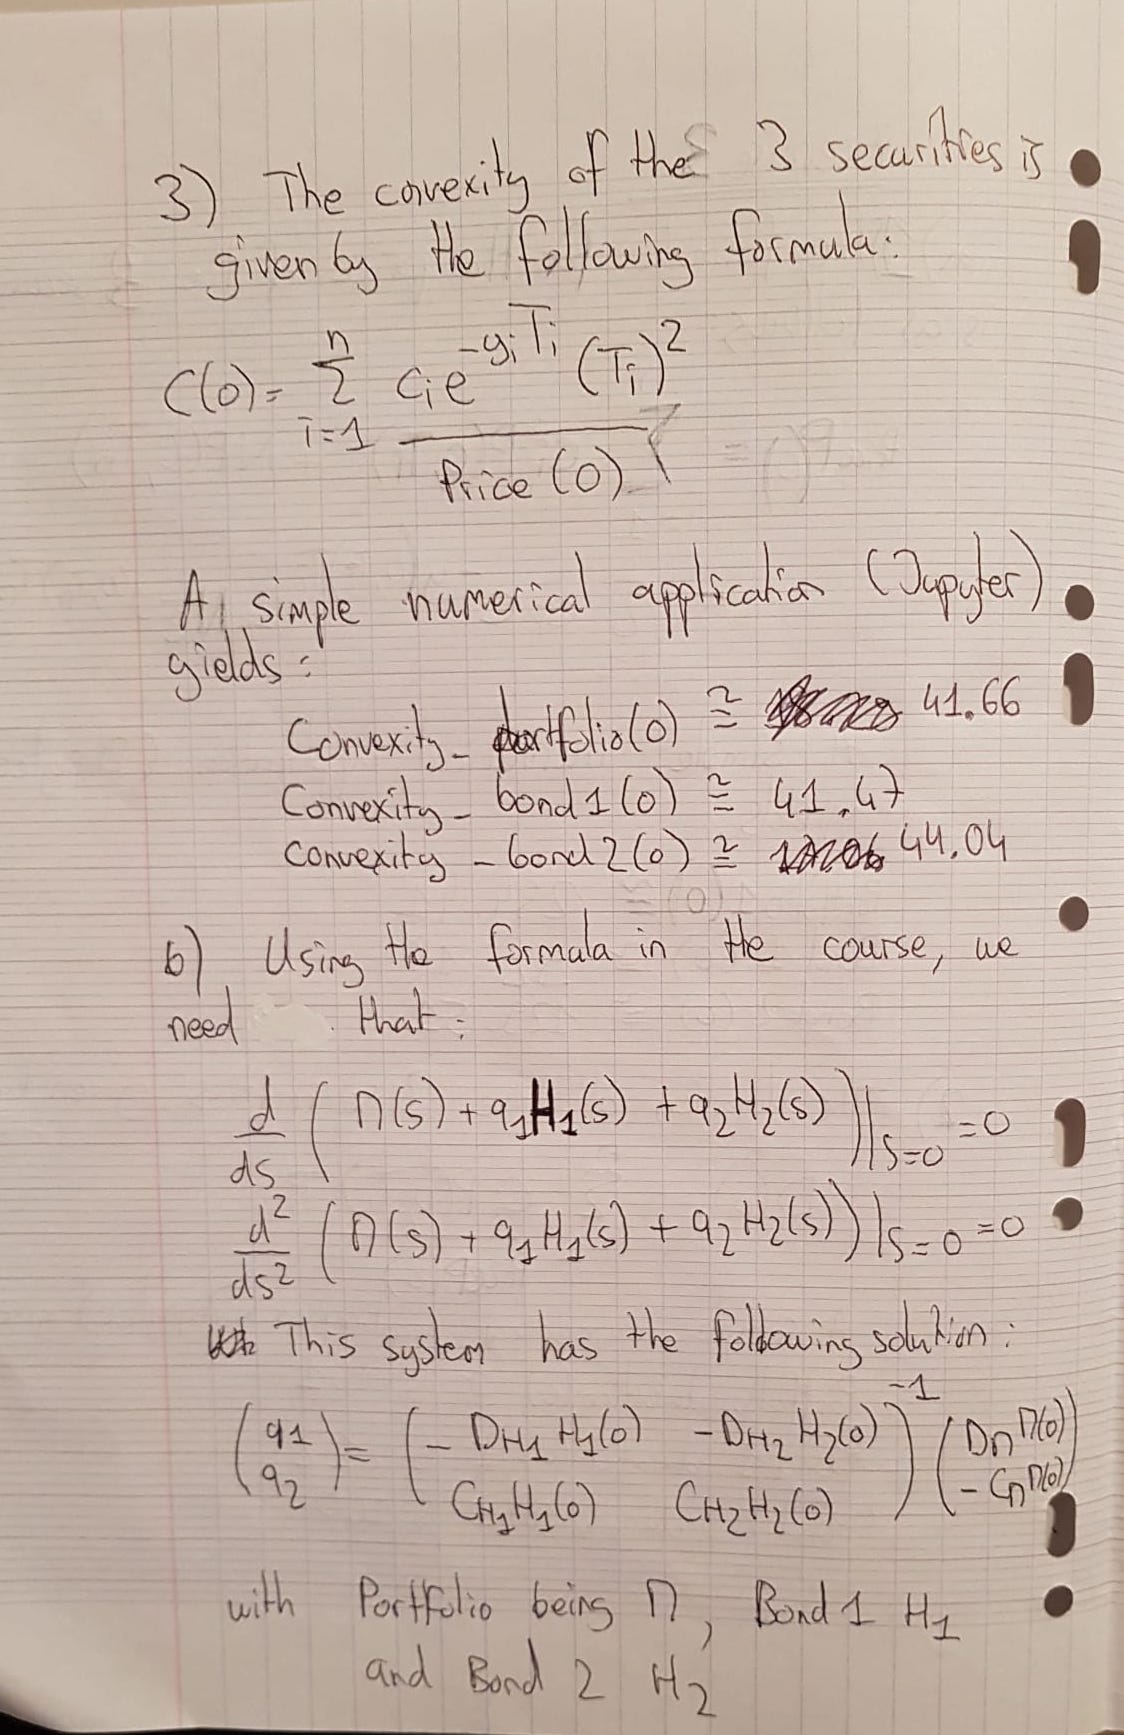 3) The convexity of the 3 securities is
given by the following formula:
C(0) = \sum_{i=1}^{n} \frac{c_i e^{-y_i T_i} (T_i)^2}{Price(0)}
A simple numerical application (Jupyter)
yields:
Convexity_portfolio(0) ≅ 41.66
Convexity_bond1(0) ≅ 41.47
Convexity_bond2(0) ≅ 44.04
b) Using the formula in the course, we
need that:
\frac{d}{ds} (Π(s) + q_1 H_1(s) + q_2 H_2(s))|_{s=0} = 0
\frac{d^2}{ds^2} (Π(s) + q_1 H_1(s) + q_2 H_2(s))|_{s=0} = 0
This system has the following solution:
\begin{pmatrix} q_1 \\ q_2 \end{pmatrix} = \begin{pmatrix} -D_{H_1} H_1(0) & -D_{H_2} H_2(0) \\ C_{H_1} H_1(0) & C_{H_2} H_2(0) \end{pmatrix}^{-1} \begin{pmatrix} D_Π Π(0) \\ -C_Π Π(0) \end{pmatrix}
with Portfolio being Π, Bond 1 H_1
and Bond 2 H_2